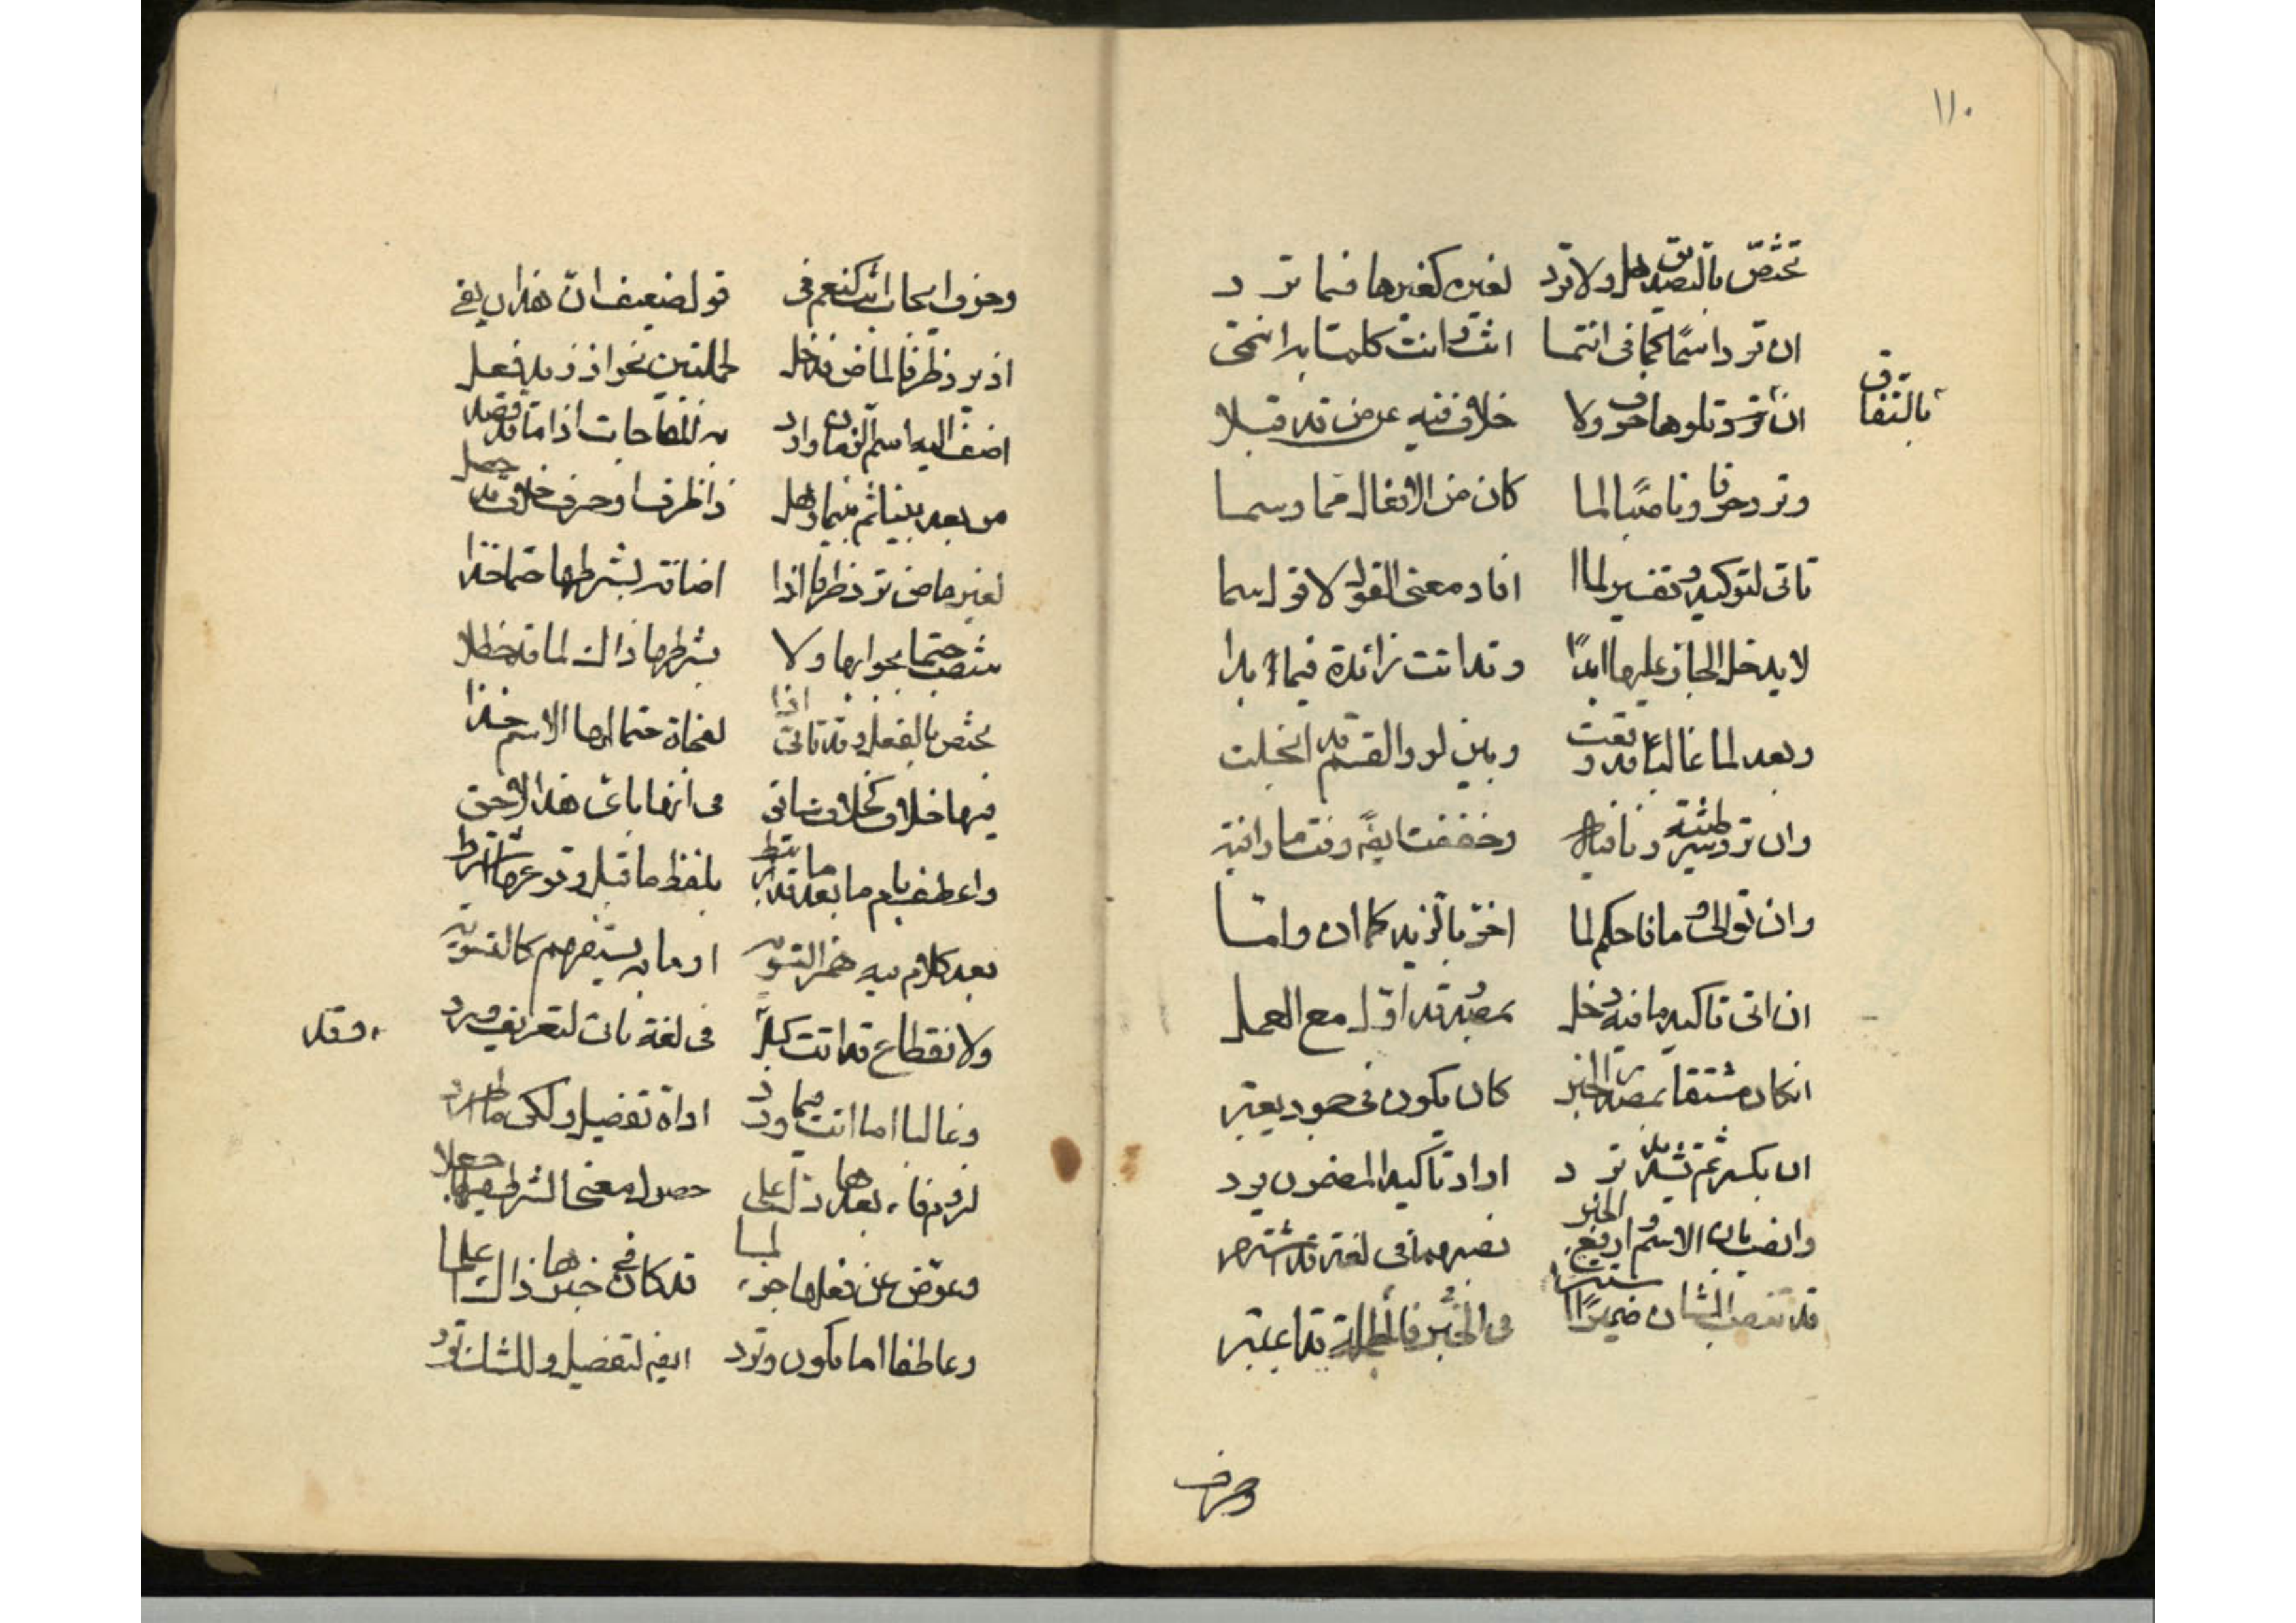 ١١٠
تختصّ بالتصديق هل ولا ترد لغيره كغيرها فيما ترد
ان ترد اسمًا كما في انتما انت وانت كلمتا بدا انتمى
بالتفاق
ان ترد تلوها حرف ولا خلاف فيه عن من قد قبلا
وترد حرفا وناصبًا لما كان من الافعال مما وسما
تاتى لتوكيد وتفسير لما افاد معنى القول لا قول سما
لا يدخل الجار عليها ابدًا وقد اتت زائدة فيما بدا
وبعد لما غالبًا قد وقعت وبين لو والقسم قد انجلت
وان ترد ونافيه وخففت ايضً وفت ما وافيه
وان توالى وما فاحكم لما اخر بالزيد كما ان واما
ان اتى تاكيد ما فيه دخل بمصدر قد اوّل مع العمل
انكان مشتقا بمصدر الخبر كان يكون في يعتبر
ان بكسر ثم تشديد ترد او اد تاكيد المضمون يرد
وانصب بان الاسم وارفع الخبر نصبهما في لغة قد اشتهر
قد تنصب الشان ضميرًا استتر في الخبر فالجملة قد اعتبر
وحرف
وحرف ايجاب اتت كنعم في قول ضعيف انّ هذا ان يفي
اذ يرد ظرفا لماض قد دخل لجملتين نحو اذ زيد فعل
اضف اليه اسم الزمان وارد به للمفاجات اذا ما قد قصد
من بعد بينا ثم بينما وهل ذا ظرف او حرف خلاف قد حصل
لغير ماض ترد ظرفا اذا اضافته لشرطها حتما خذا
تنصب حتما بجوابها ولا بشرطها ذاك لما قد حظلا
يختص بالفعل وقد تاتى اذا لفجاة حتما لها الاسم خذا
فيها خلاف كخلاف ياتى في انها باى هذا الاحق
واعطف بام ما بعد قد ما يرتبط بلفظ ما قبل وقوعها اشترط
بعد كلام فيه همز التسويه او ما به يستفهم كالتسويه
ولانقطاع قد اتت كبل في لغة ياتى لتعريف ويرد
وقد
وغالبا اما اتت فيما ورد اداة تفضيل ولكى ما اطرد
لزوم فاء بعدها دل على حصول معنى الشرط فيها جعلا
وعوّض عن فعلها جزء لما قد كان في خبرها ذاك اعلما
وعاطفا اما يكون وترد ايضً لتفضيل وللشك ترد